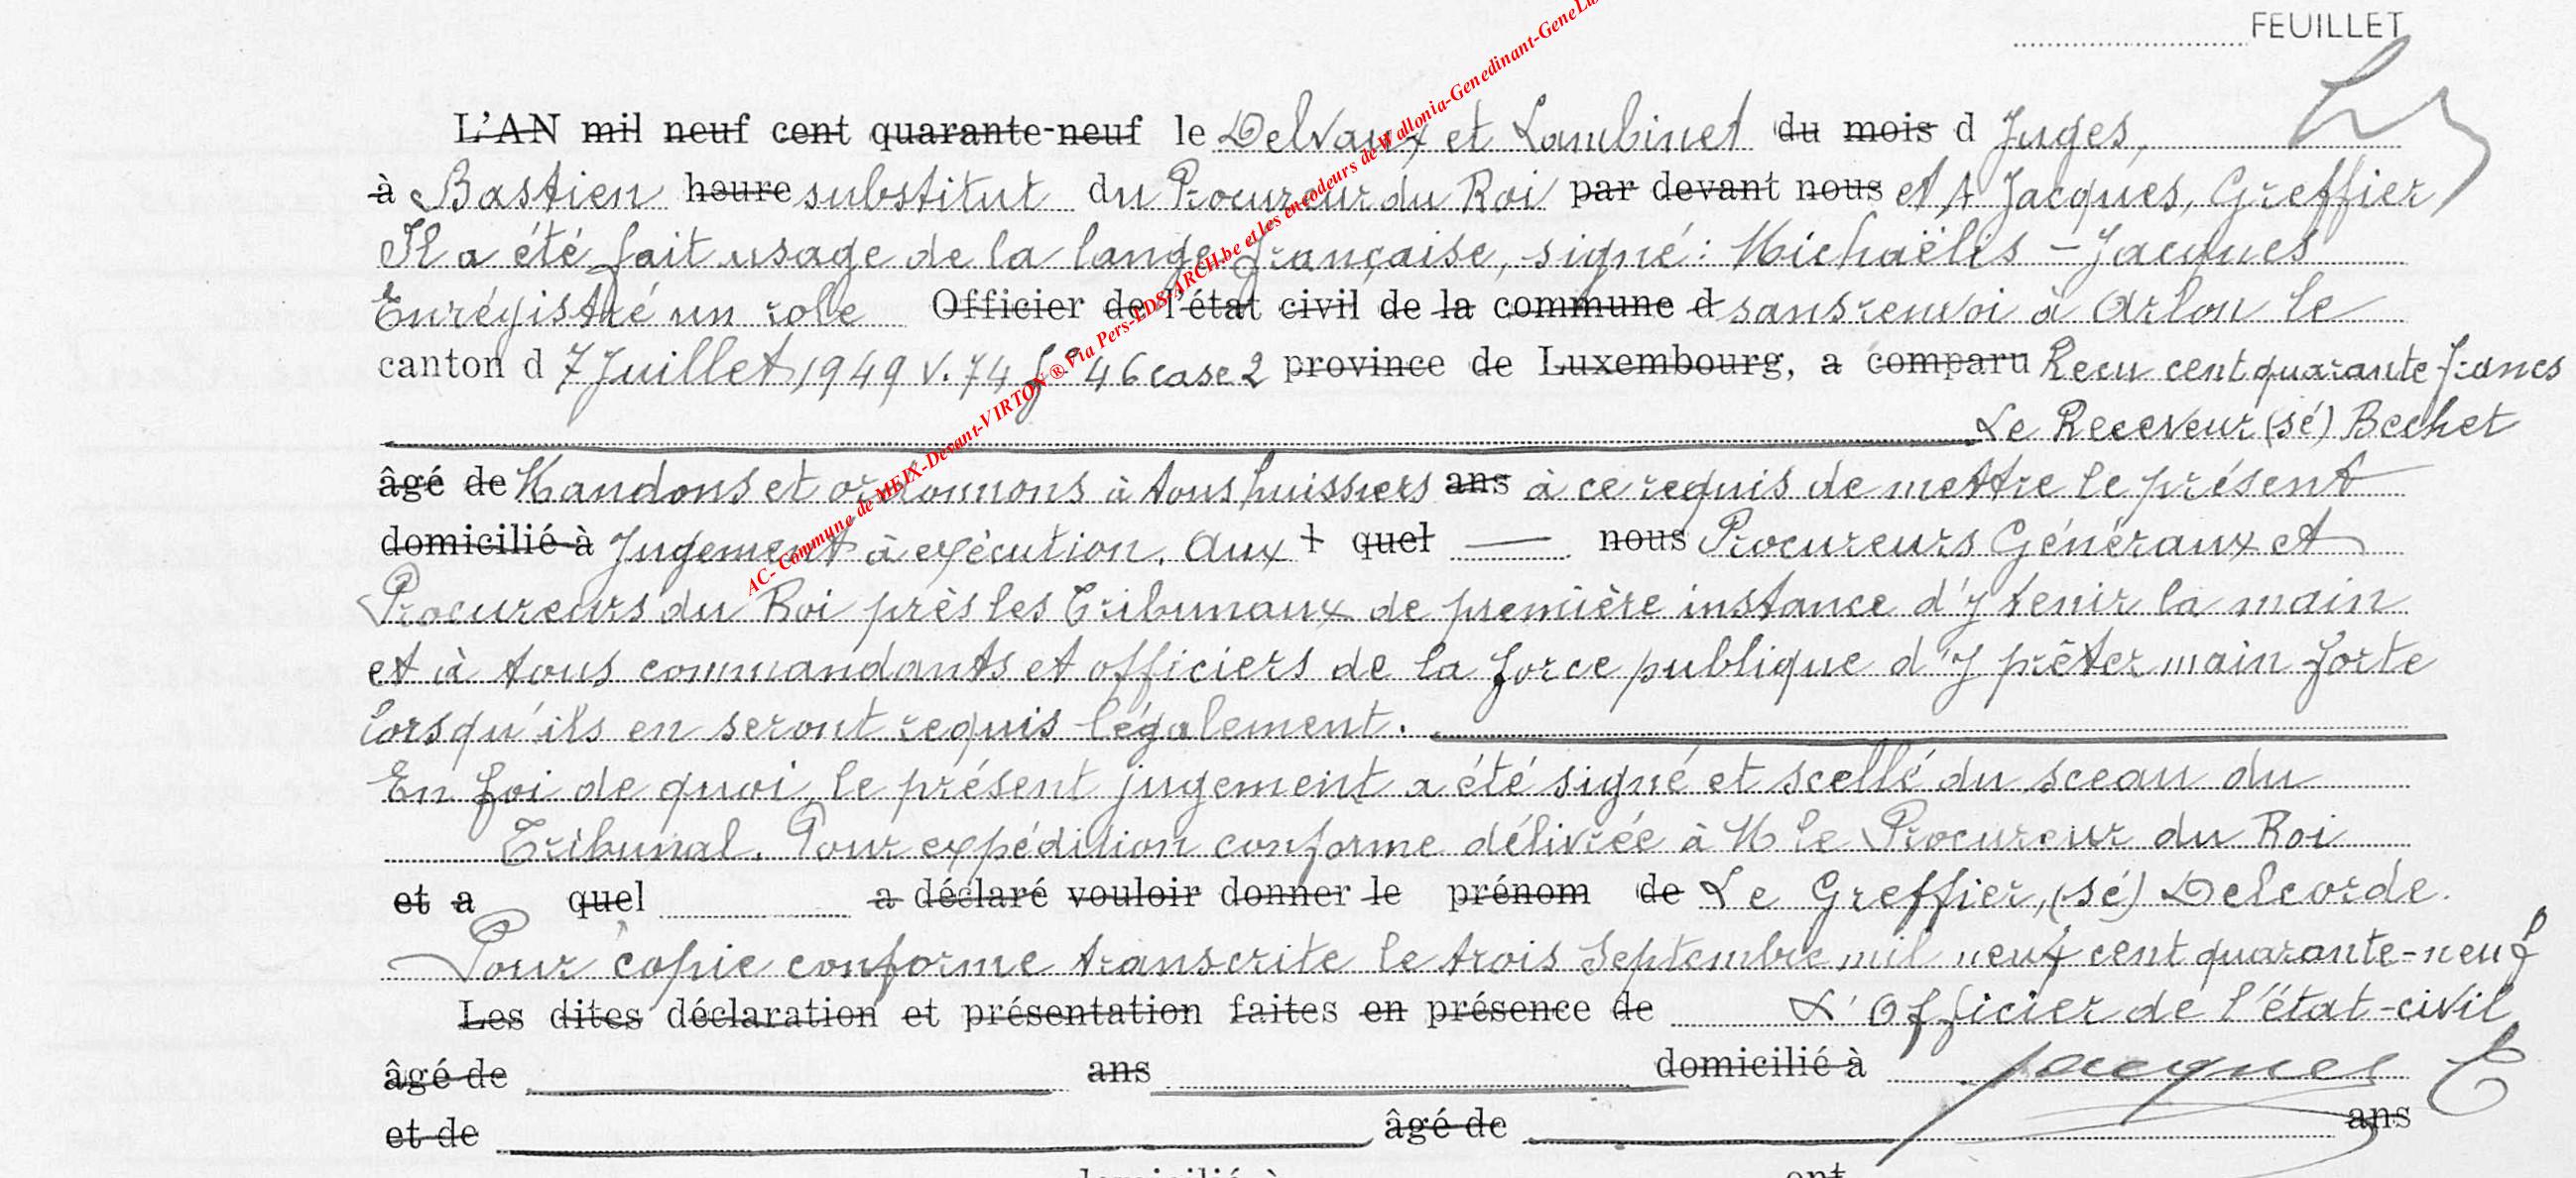 FEUILLET
L'AN mil neuf cent quarante-neuf le Delvaux et Lambinet du mois d Juges,
à Bastien heure substitut du Procureur du Roi par devant nous et A Jacques, Greffier
Il a été fait usage de la lange française, signé: Michaëlis – Jacques
Enrégistré un role Officier de l'état civil de la commune d sans renvoi à Arlon le
canton d 7 Juillet 1949 V. 74 f° 46 case 2 province de Luxembourg, a comparu Recu cent quarante francs
Le Receveur (sé) Bechet
âgé de Mandons et ordonnons à tous huissiers ans à ce requis de mettre le présent
domicilié à Jugement à exécution. Aux quel — nous Procureurs Généraux et
Procureurs du Roi près les Tribunaux de première instance d'y tenir la main
et à tous commandants et officiers de la force publique d'y prêter main forte
lorsqu'ils en seront requis légalement.
En foi de quoi, le présent jugement a été signé et scellé du sceau du
Tribunal. Pour expédition conforme délivrée à M le Procureur du Roi
et a quel a déclaré vouloir donner le prénom de Le Greffier, (sé) Delcorde.
Pour copie conforme transcrite le trois Septembre mil neuf cent quarante-neuf
Les dites déclaration et présentation faites en présence de L'Officier de l'état-civil
âgé de ans domicilié à Jacques C
et de âgé de ans
domicilié à ont
AC- Commune de MEIX-Devant-VIRTON ® Via Pers-LDS-ARCH.be et les encodeurs de Wallonia-Genedinant-GeneLux